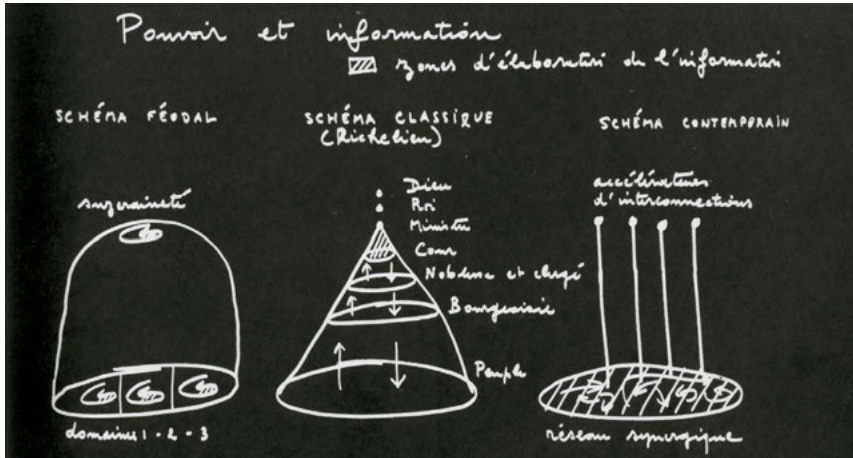 Pouvoir et information
zones d'élaboration de l'information
SCHÉMA FÉODAL
suzeraineté
domaines 1 - 2 - 3
SCHÉMA CLASSIQUE
(Richelieu)
Dieu
Roi
Ministre
Cour
Noblesse et clergé
Bourgeoisie
Peuple
SCHÉMA CONTEMPORAIN
accélérateurs
d'interconnections
réseau synergique